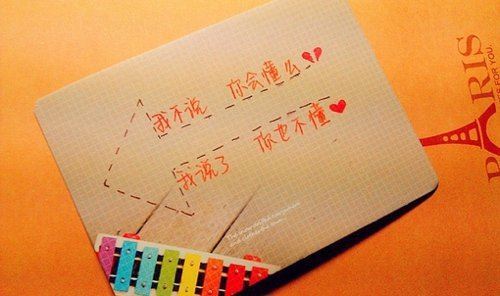 我不说 你会懂么
我说了 你也不懂
PARIS
FOR YOU.